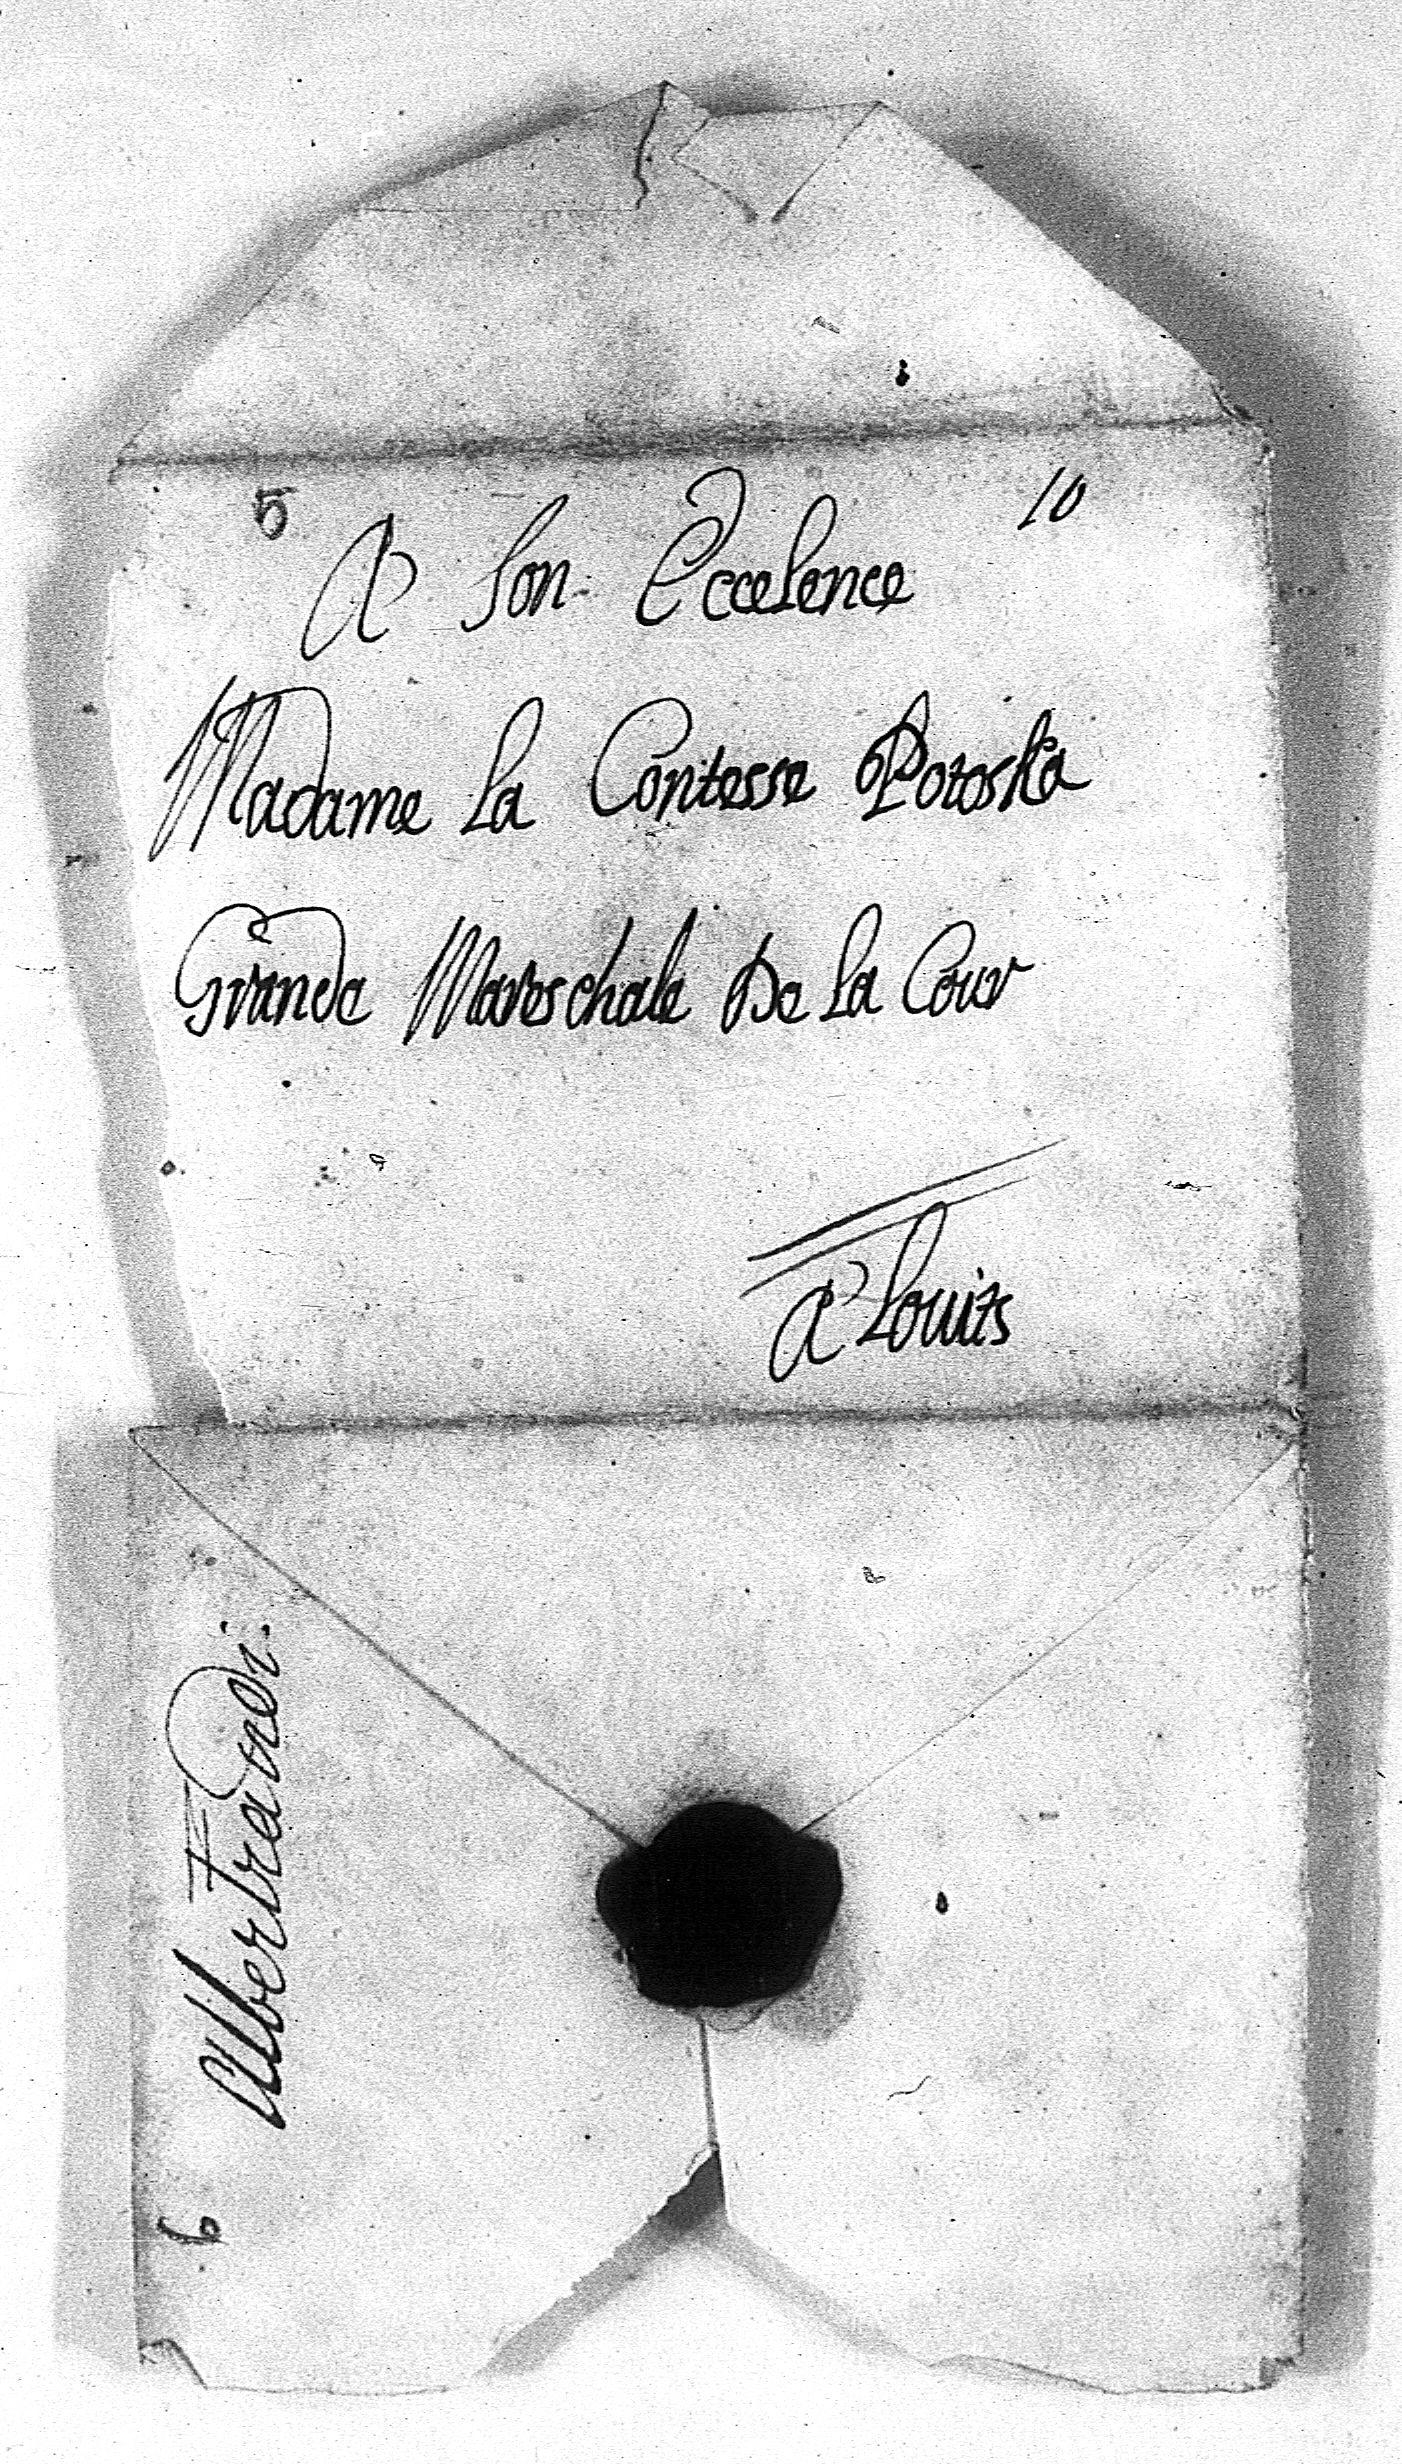 5 10
A Son Eccelence
Madame La Contesse Potoska
Grande Mareschale De La Cour
A Louits
Albertrandi.
6